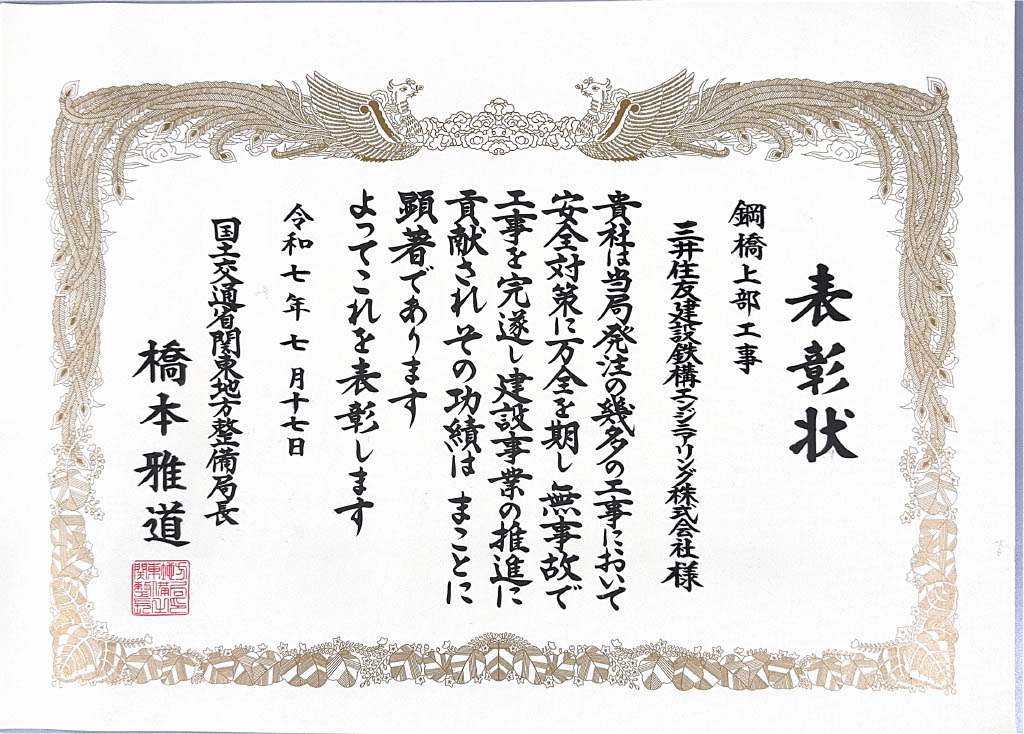 表彰状
鋼橋上部工事
三井住友建設鉄構エンジニアリング株式会社様
貴社は当局発注の幾多の工事において
安全対策に万全を期し無事故で
工事を完遂し建設事業の推進に
貢献されその功績はまことに
顕著であります
よってこれを表彰します
令和七年七月十七日
国土交通省関東地方整備局長
橋本雅道